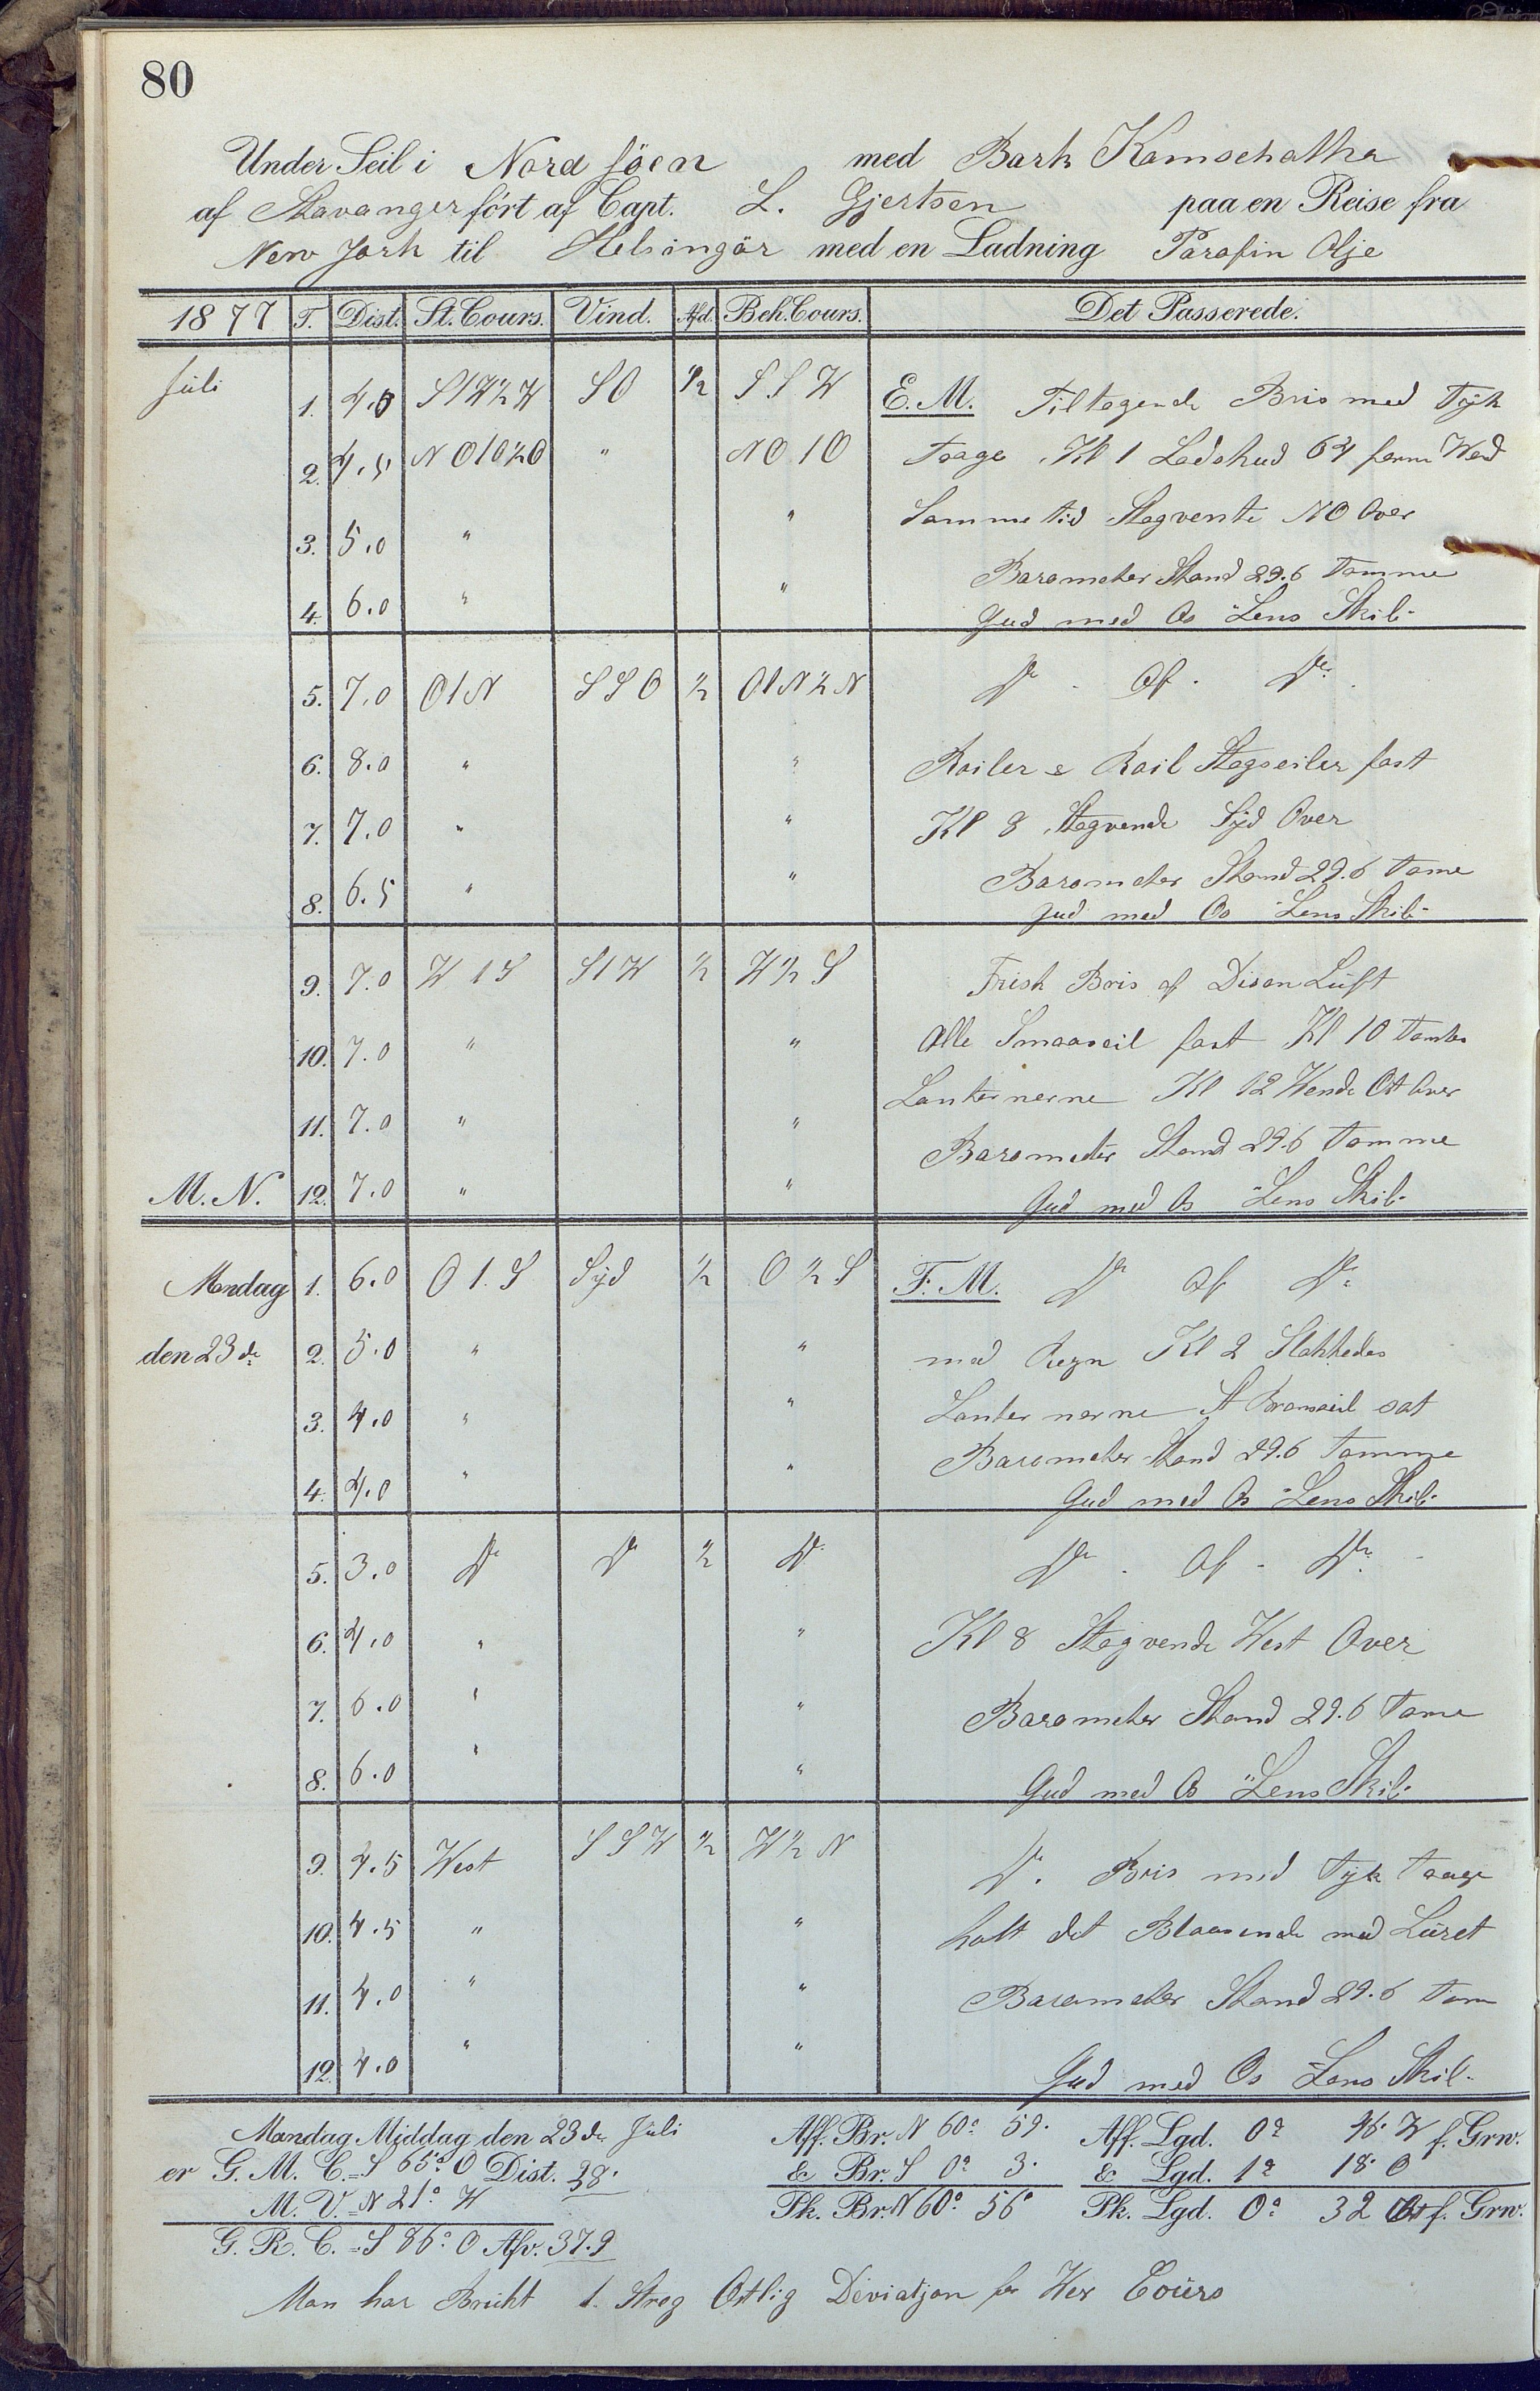 80
Under Seil i Nord Söen med Bark Kamschatka
af Stavanger fört af Capt. L. Gjertsen paa en Reise fra
New York til Helsingör med en Ladning Parafin Olje
1877 T. Dist. St. Cours. Vind. Afd. Beh. Cours. Det Passerede.
Juli 1. 4.0 S1W½W SO ½ SSW E. M. Tiltagende Bris med Tyk
2. 4.5 NO1O½O " NO1O Taage Kl 1 Lodskud 64 favne Vand
3. 5.0 " " Samme tid Stagvente NO Over
4. 6.0 " " Barometer Stand 29.6 Tomme
Gud med Os Lens Skib
5. 7.0 O1N SSO ½ O1N½N Do Af Do
6. 8.0 " " Roiler & Roil Stagseiler fast
7. 7.0 " " Kl 8 Stagvende Syd Over
8. 6.5 " " Barometer Stand 29.6 Tome
Gud med Os Lens Skib
9. 7.0 W1S S1W ½ W½S Frisk Bris af Disen Luft
10. 7.0 " " Alle Smaaseil fast Kl 10 Tændes
11. 7.0 " " Lanternerne Kl 12 Vende Ost Over
Barometer Stand 29.6 Tomme
M. N. 12. 7.0 " " Gud med Os Lens Skib
Mandag 1. 6.0 O1.S Syd ½ O½S F. M. Do Af Do
den 23de 2. 5.0 " " med Regn Kl 2 Slukkedes
3. 4.0 " " Lanternerne St Bramseil sat
4. 4.0 " " Barometer Stand 29.6 Tomme
Gud med Os Lens Skib
5. 3.0 Do Do ½ Do Do Af Do
6. 4.0 " " Kl 8 Stagvende West Over
7. 6.0 " " Barometer Stand 29.6 Tome
8. 6.0 " " Gud med Os Lens Skib
9. 4.5 West SSW ½ W½N Do. Bris med Tyk Taage
10. 4.5 " " holt det Blaasende med Luret
11. 4.0 " " Barometer Stand 29.6 Tom
12. 4.0 " " Gud med Os Lens Skib
Mandag Middag den 23de Juli Aff. Br. N 60° 59' Aff. Lgd. 0° 46' W f. Grw.
er G. M. C. = S 65° O Dist. 38' & Br. S 0° 3' & Lgd. 1° 18' O
M. V. = N 21° W Pk. Br. N 60° 56' Pk. Lgd. 0° 32 Ost f. Grw.
G. R. C. = S 86° O Afv. 37.9
Man har Brukt 1. Streg Ostlig Deviatjon for Ver Cours